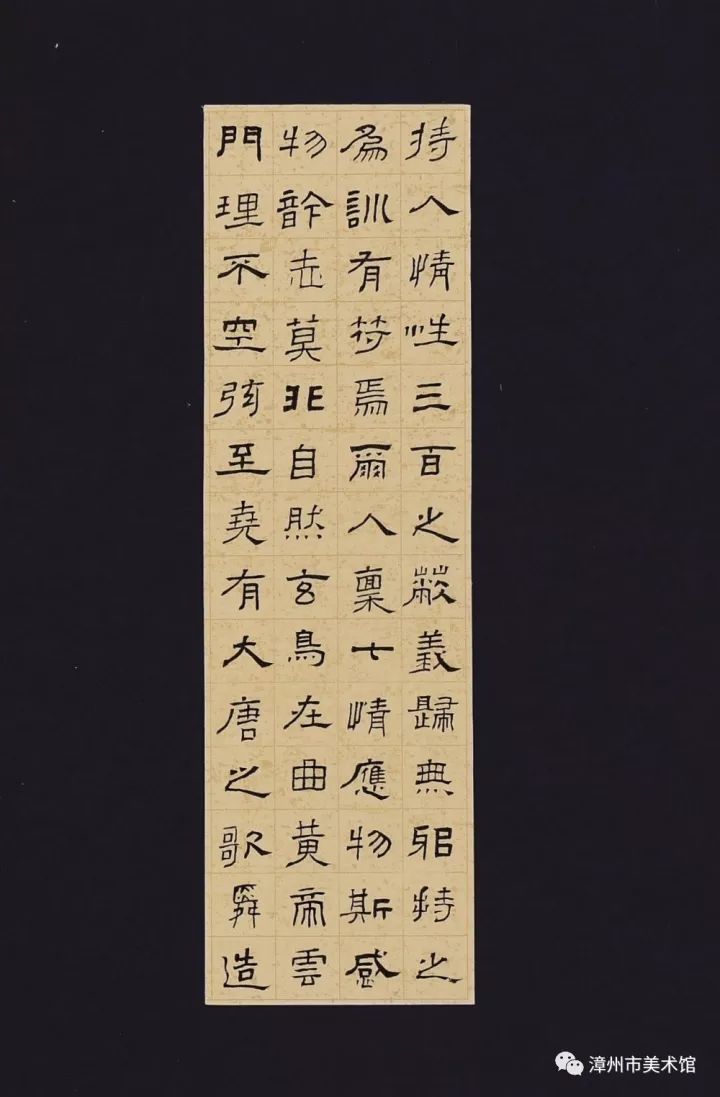 持人情性三百之蔽義歸無邪持之
為訓有符焉爾人稟七情應物斯感
物䪩志莫非自然玄鳥在曲黃帝雲
門理不空弦至堯有大唐之歌舜造
漳州市美术馆